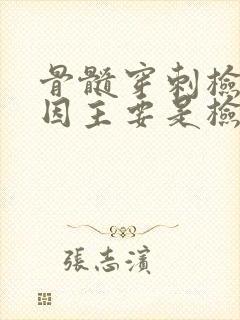 骨髓穿刺檢
因主要是檢
張志濱